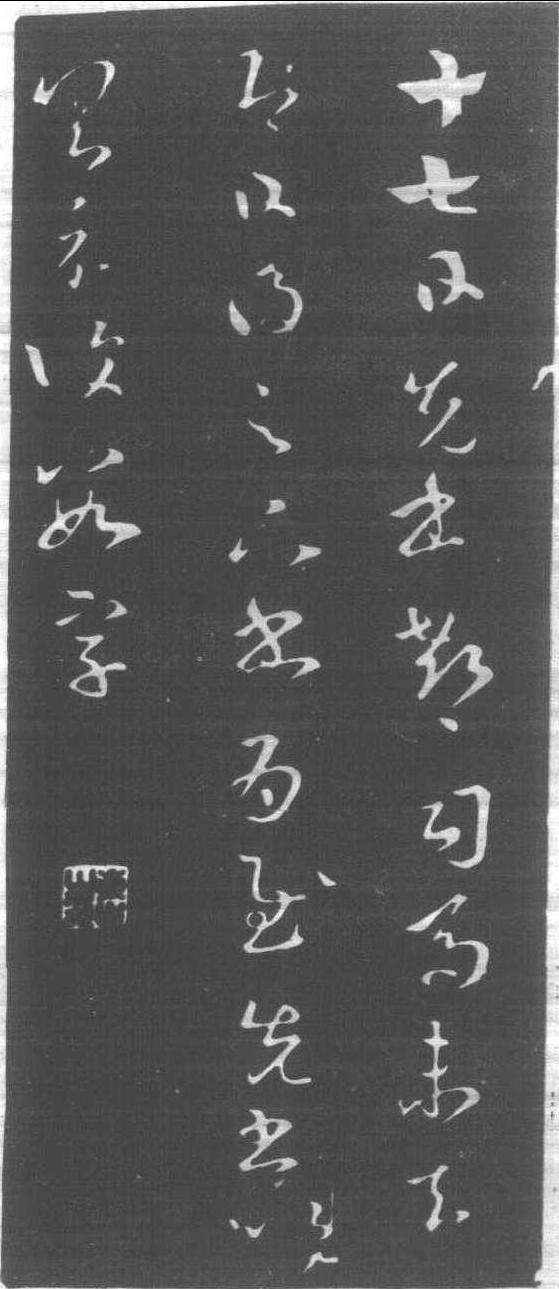 十七日先書郗司馬未去
即日得足下書為慰先書以具
示復數字